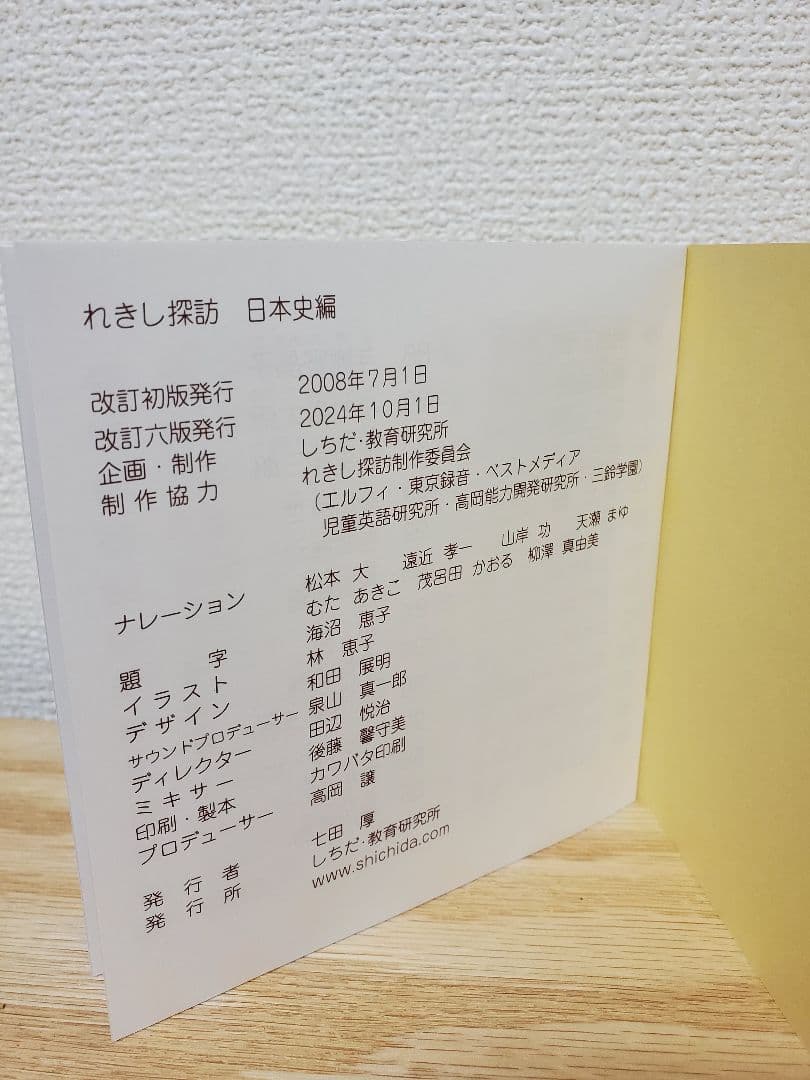 れきし探訪 日本史編
改訂初版発行 2008年7月1日
改訂六版発行 2024年10月1日
企画・制作 しちだ・教育研究所
制作協力 れきし探訪制作委員会
(エルフィ・東京録音・ベストメディア
児童英語研究所・高岡能力開発研究所・三鈴学園)
ナレーション 松本 大 遠近 孝一 山岸 功 天瀬 まゆ
むた あきこ 茂呂田 かおる 柳澤 真由美
題字 海沼 恵子
イラスト 林 恵子
デザイン 和田 展明
サウンドプロデューサー 泉山 真一郎
ディレクター 田辺 悦治
ミキサー 後藤 馨守美
印刷・製本 カワバタ印刷
プロデューサー 高岡 譲
発行者 七田 厚
発行所 しちだ・教育研究所
www.shichida.com